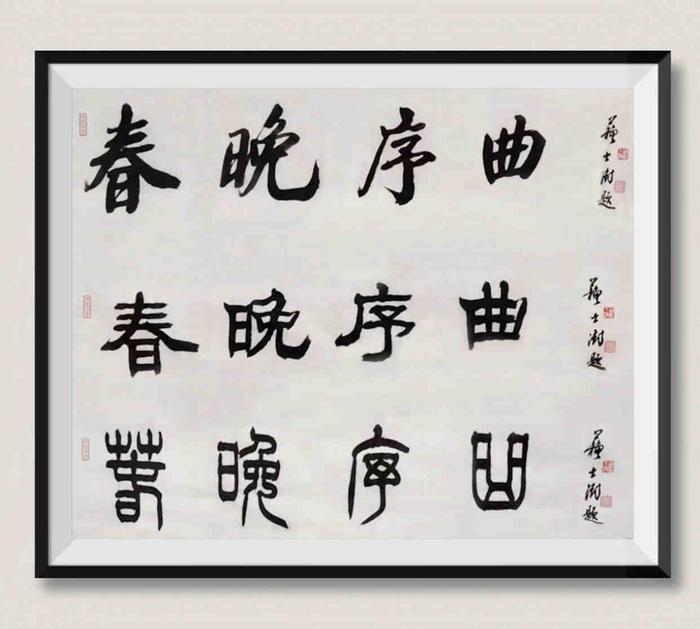 春晚序曲
蘇士澍题
春晚序曲
蘇士澍题
春晚序曲
蘇士澍题